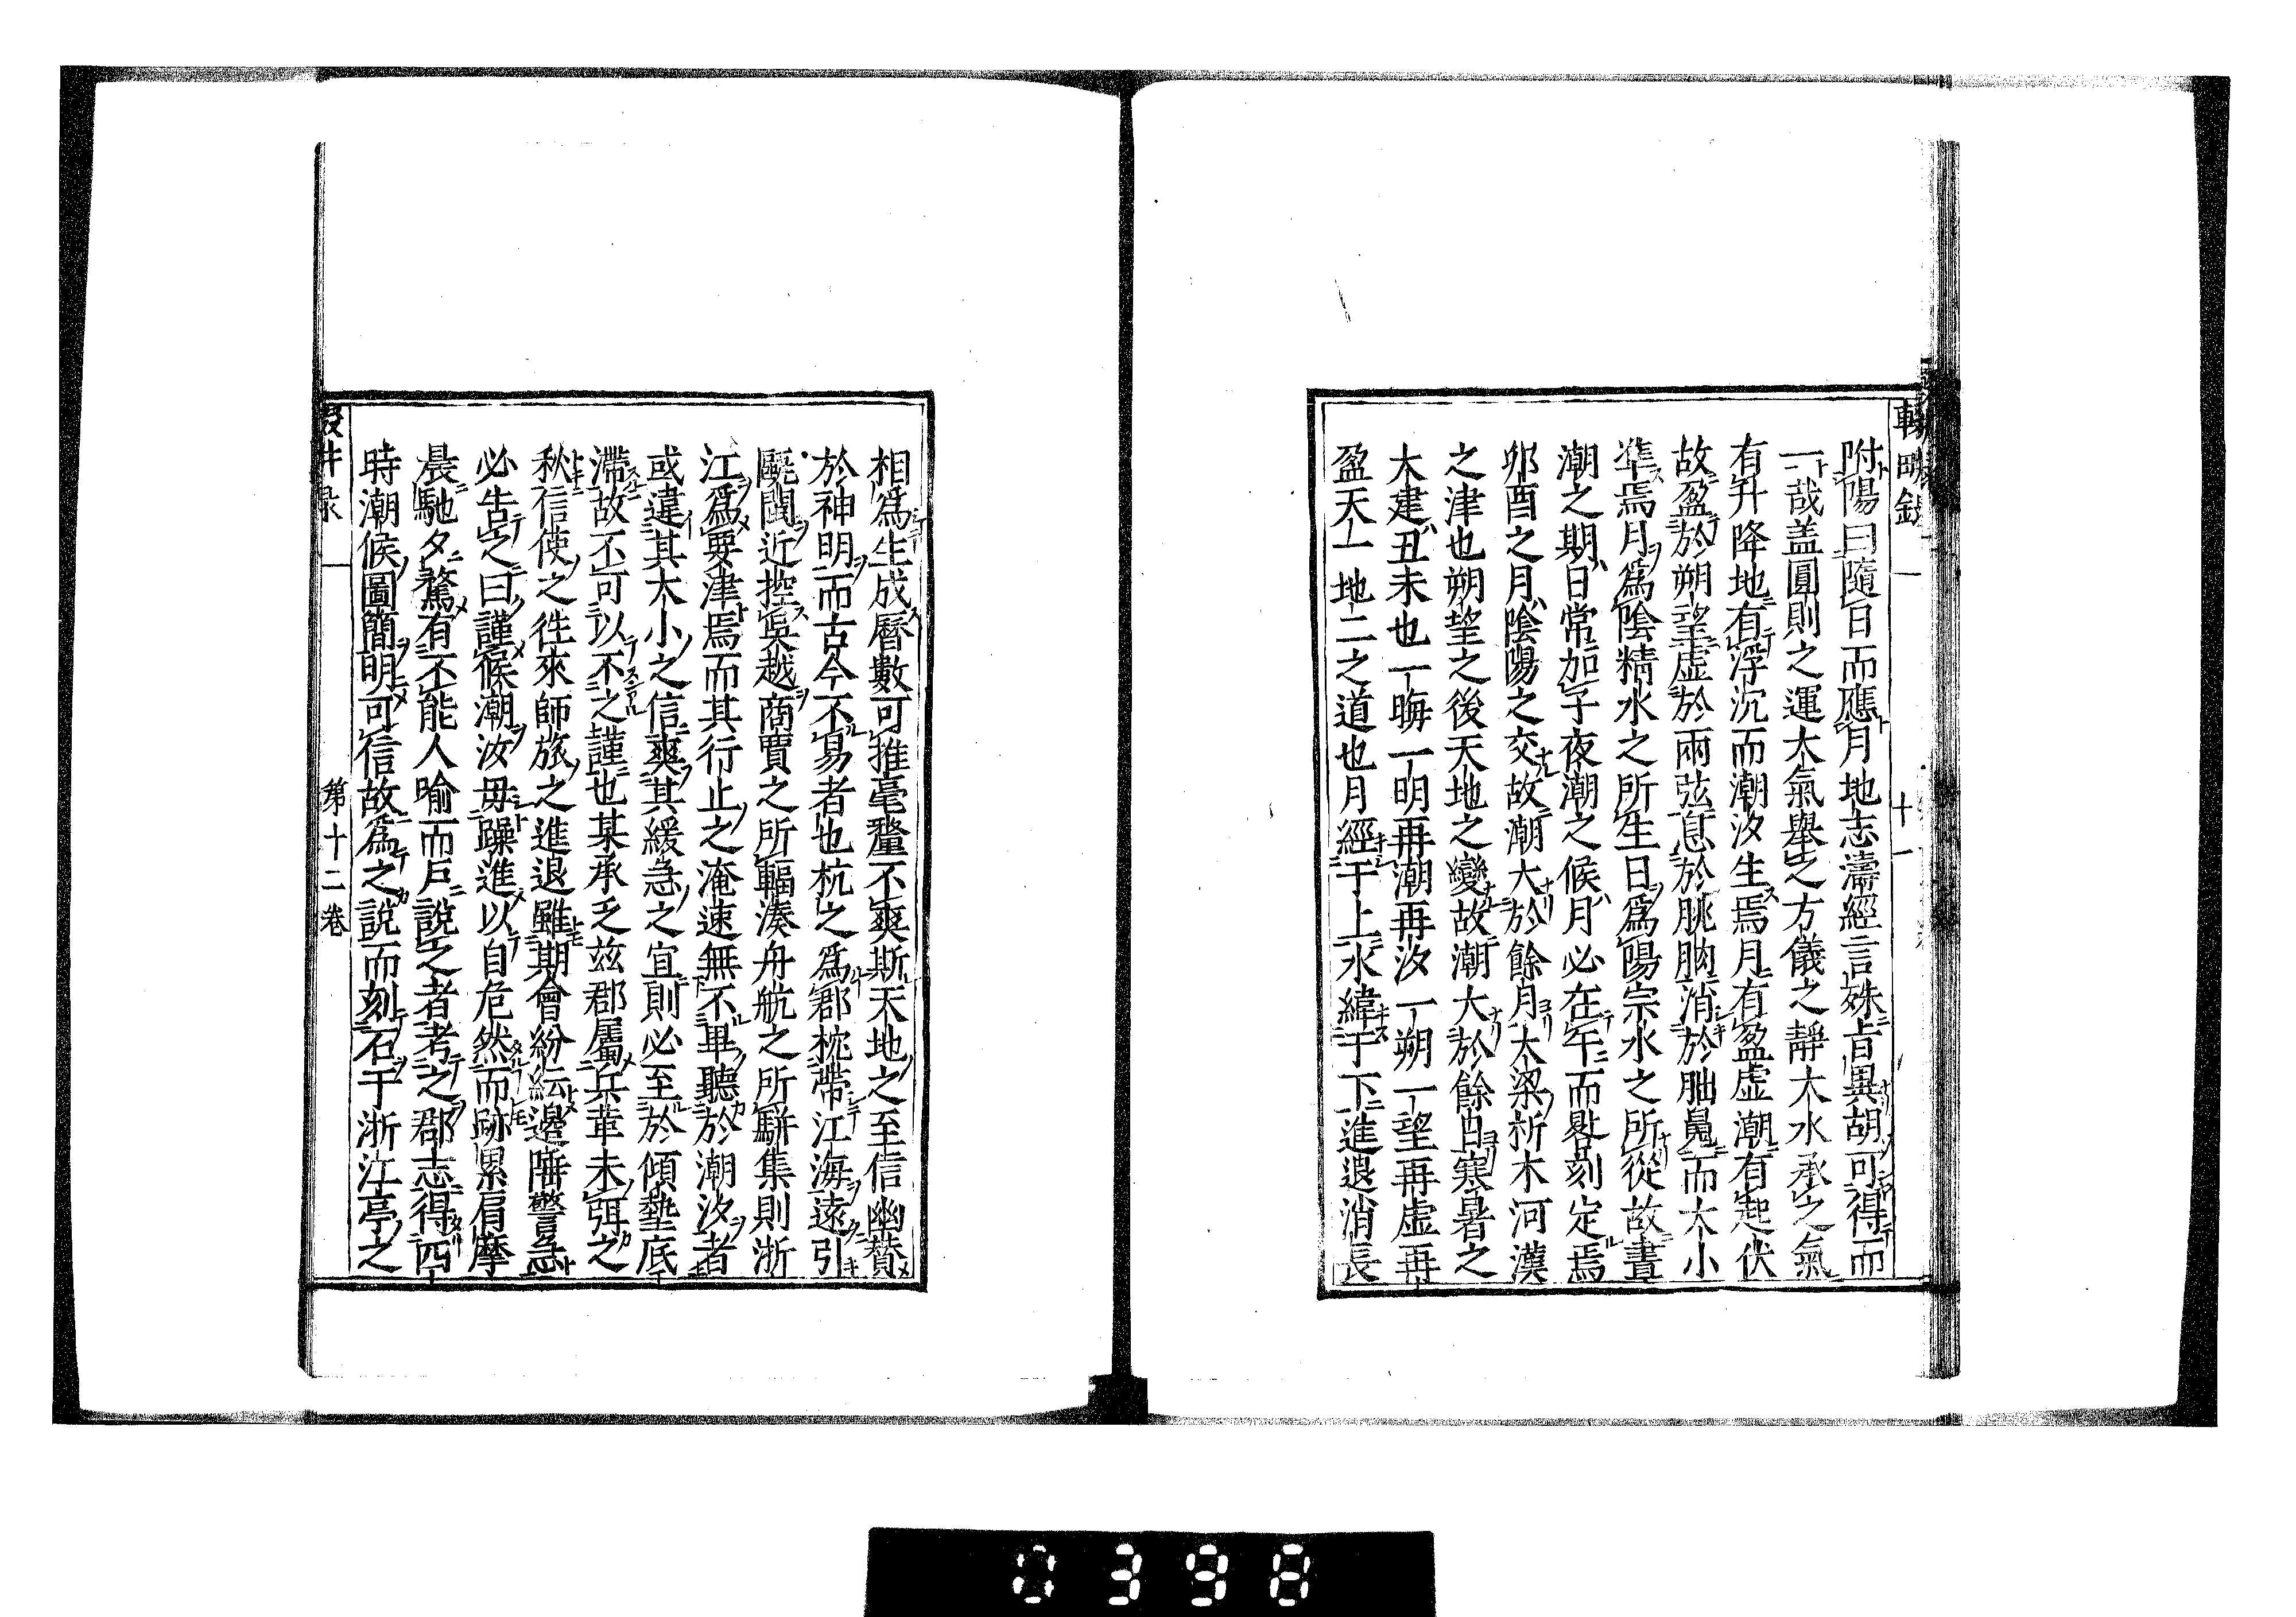 輟畊錄 十一
附陽曰隨日而應月地志濤經言殊旨異胡可得而
一哉盖圓則之運大氣舉之方儀之靜大水承之氣
有升降地有浮沉而潮汐生焉月有盈虛潮有起伏
故盈於朔望虛於兩弦息於朓朒消於朏魄而大小
準焉月爲陰精水之所生日爲陽宗水之所從故晝
潮之期日常加子夜潮之候月必在午而晷刻定焉
卯酉之月陰陽之交故潮大於餘月大梁析木河漢
之津也朔望之後天地之變故潮大於餘日寒暑之
大建丑未也一晦一明再潮再汐一朔一望再虛再
盈天一地二之道也月經于上水緯于下進退消長
相爲生成曆數可推毫釐不爽斯天地之至信幽贊
於神明而古今不易者也杭之爲郡枕帶江海遠引
甌閩近控吳越商賈之所輻湊舟航之所騈集則浙
江爲要津焉而其行止之淹速無不畢聽於潮汐者
或違其大小之信爽其緩急之宜則必至於傾墊底
滯故不可以不之謹也某承乏兹郡屬兵革未弭之
秋信使之徃來師旅之進退雖期會紛紜邊陲警急
必告之曰謹候潮汐毋躁進以自危然而跡累肩摩
晨馳夕騖有不能人喻而戶說之者考之郡志得四
時潮候圖簡明可信故爲之說而刻石于浙江亭之
第十二卷
0398